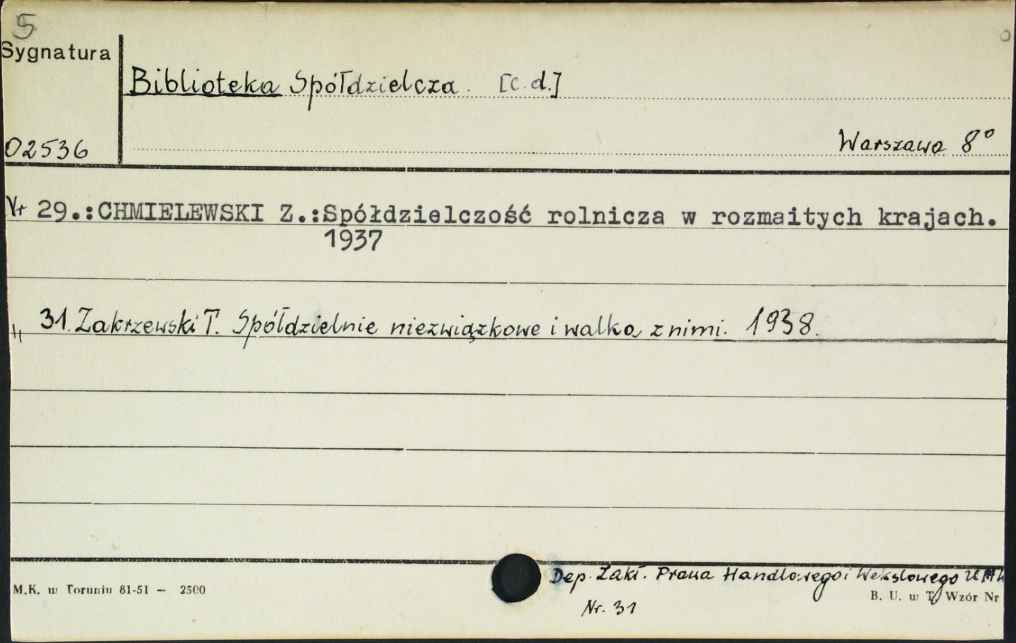 5
Sygnatura
Biblioteka Spółdzielcza. [c.d.]
02536
Warszawa 8°
Nr 29.:CHMIELEWSKI Z.:Spółdzielczość rolnicza w rozmaitych krajach.
1937
" 31. Zakrzewski T. Spółdzielnie niezwiązkowe i walka z nimi. 1938.
Dep. Zakł. Prawa Handlowego i Wekslowego UMK
M.K. w Toruniu 81-51 — 2500
B. U. w T. Wzór Nr
Nr. 31